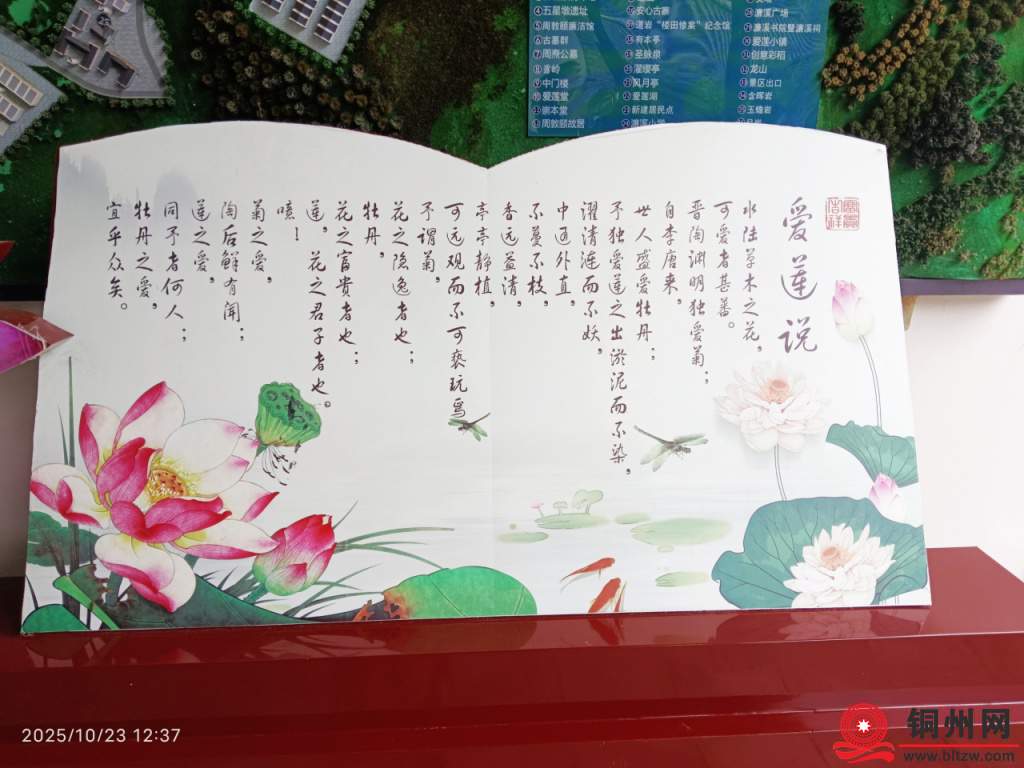 ④五星墩遗址
⑤周敦颐廉洁馆
⑥古墓群
⑦周濂公墓
⑧豸岭
⑨中门楼
⑩爱莲堂
⑪崇本堂
⑫周敦颐故居
安心古寨
道岩“楼田修案”纪念馆
有本亭
圣脉泉
濯缨亭
风月亭
爱莲湖
新建居民点
濂溪广场
濂溪书院暨濂溪祠
爱莲小镇
创意彩稻
龙山
景区出口
含晖岩
玉蟾岩
爱莲说
水陆草木之花，
可爱者甚蕃。
晋陶渊明独爱菊；
自李唐来，
世人盛爱牡丹；
予独爱莲之出淤泥而不染，
濯清涟而不妖，
中通外直，
不蔓不枝，
香远益清，
亭亭静植，
可远观而不可亵玩焉
予谓菊，
花之隐逸者也；
牡丹，
花之富贵者也；
莲，花之君子者也。
噫！
菊之爱，
陶后鲜有闻；
莲之爱，
同予者何人；
牡丹之爱，
宜乎众矣。
2025/10/23 12:37
铜州网
www.bltzw.com